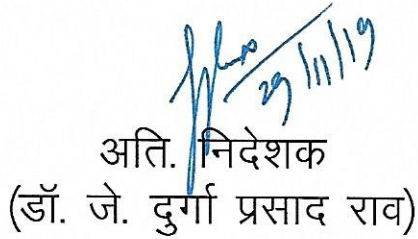 29/11/19
अति. निदेशक
(डॉ. जे. दुर्गा प्रसाद राव)